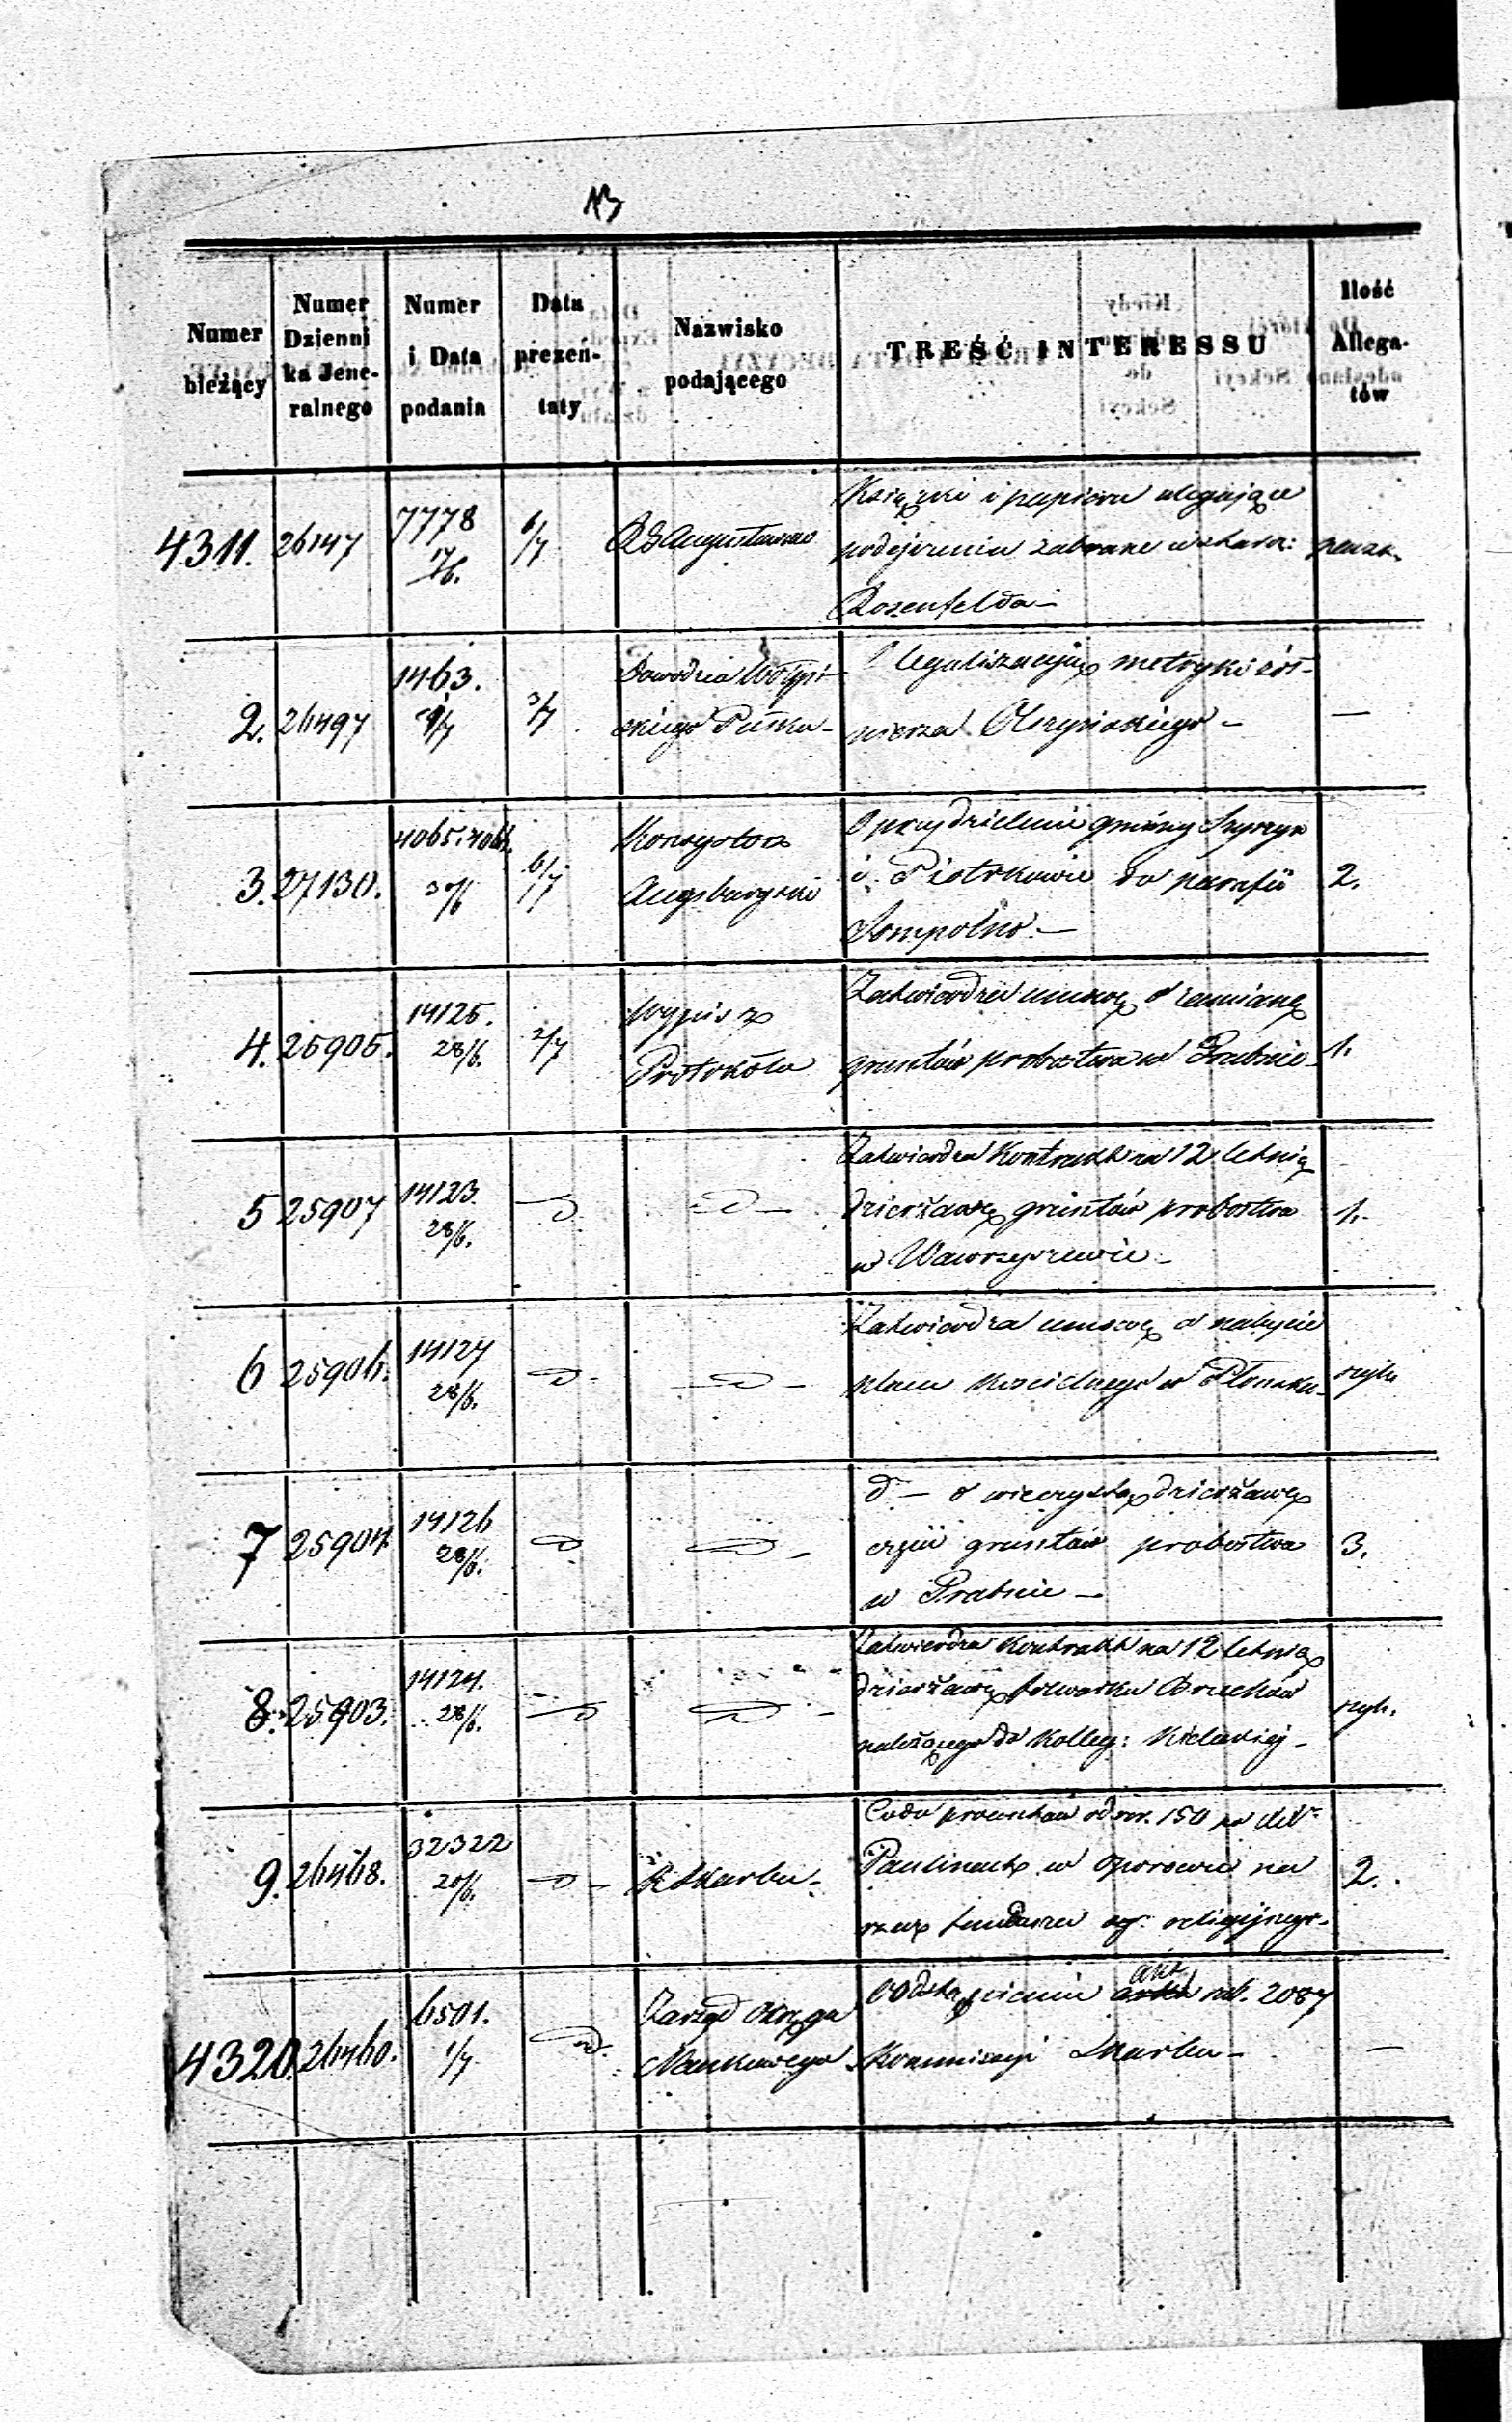 13
Numer bieżący
Numer Dzienni ka Jene- ralnego
Numer i Data podania
Data prezen- taty
Nazwisko podającego
TREŚĆ INTERESSU
Ilość Allega- tów
4311. 26147 7778 17/6. 6/7 RG Augustowski
Książki i papiery ulegające
podejrzeniu zabrane
Rosenfelda –
2. 26497 1463. 1/7 3/7
skiego Pułku –
O legalizacyją metryki żoł-
nierza –
—
3. 27130. 4065. 4066. 30/6 6/7
Konsystorz
Augsburgski
O przydzieleniu gminy
i Piotrkowie do parafii
Sompolno. –
2.
4. 25905. 14125. 28/6. 2/7
Wypis z
Protokółu
Zatwierdza umowę o zamianę
gruntów probostwa w
1.
5 25907 14123. 28/6. d d –
Zatwierdza Kontrakt na 12 letnią
dzierżawę gruntów probostwa
w Wawrzyszewie –
1.
6 25906. 14127 28/6. d – d –
Zatwierdza umowę o nabycie
placu kościelnego w Płońsku –
7 25904. 14126 28/6. d d –
d – o wieczystą dzierżawę
części gruntów probostwa
w
3.
8. 25903. 14124. 28/6. d d –
Zatwierdza Kontrakt na 12 letnią
dzierżawę folwarku
należącego do Kolleg: Kieleckiej –
9. 26468. 32322 20/6. d – R Skarbu –
150 po
Paulinach w Oporowie na
rzecz funduszu religijnego.
2.
4320. 26460. 6501. 1/7 d.
Zarząd Okręgu
Naukowego
O odstąpieniu akt 2087
Kommissyi Skarbu –
—